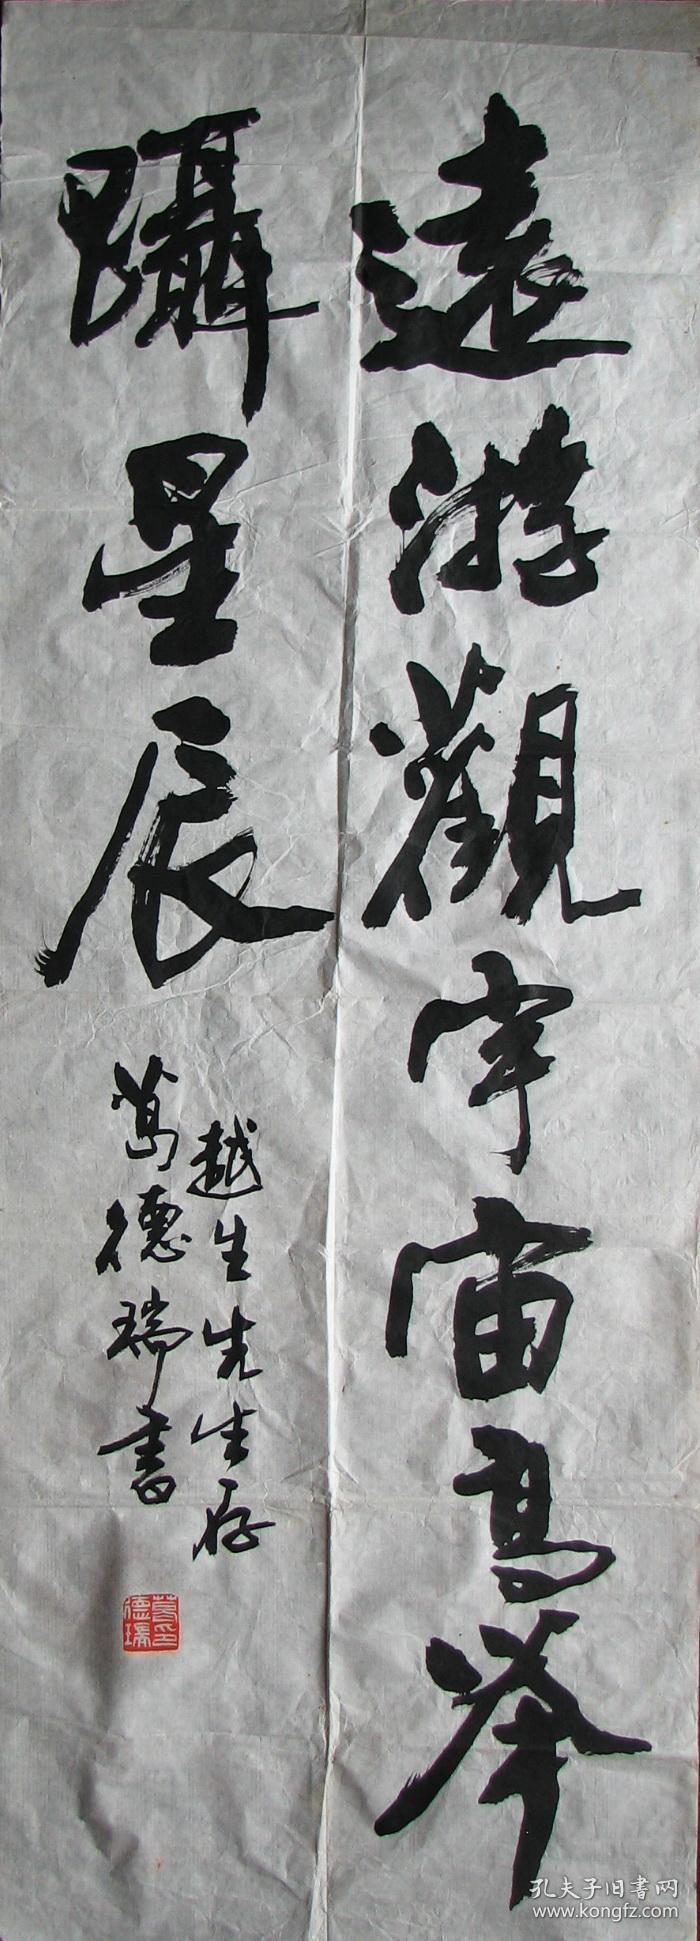 遠游觀宇宙高举
躡星辰
越生先生存
葛德瑞書
葛印德瑞
孔夫子旧书网
www.kongfz.com